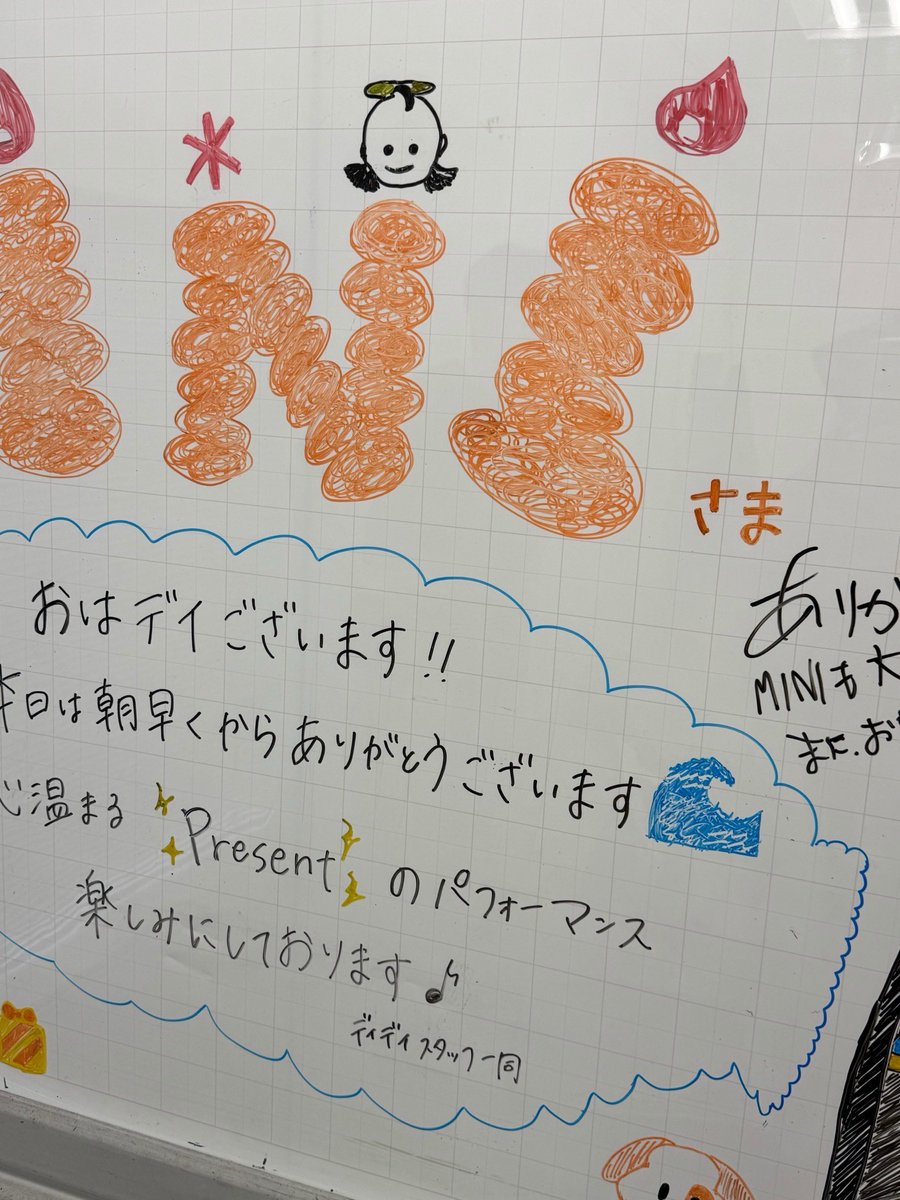 INI
さま
おはデイございます!!
本日は朝早くからありがとうございます
心温まる Present のパフォーマンス
楽しみにしております♪
ディディスタッフ一同
ありが
MINIも大
また.お